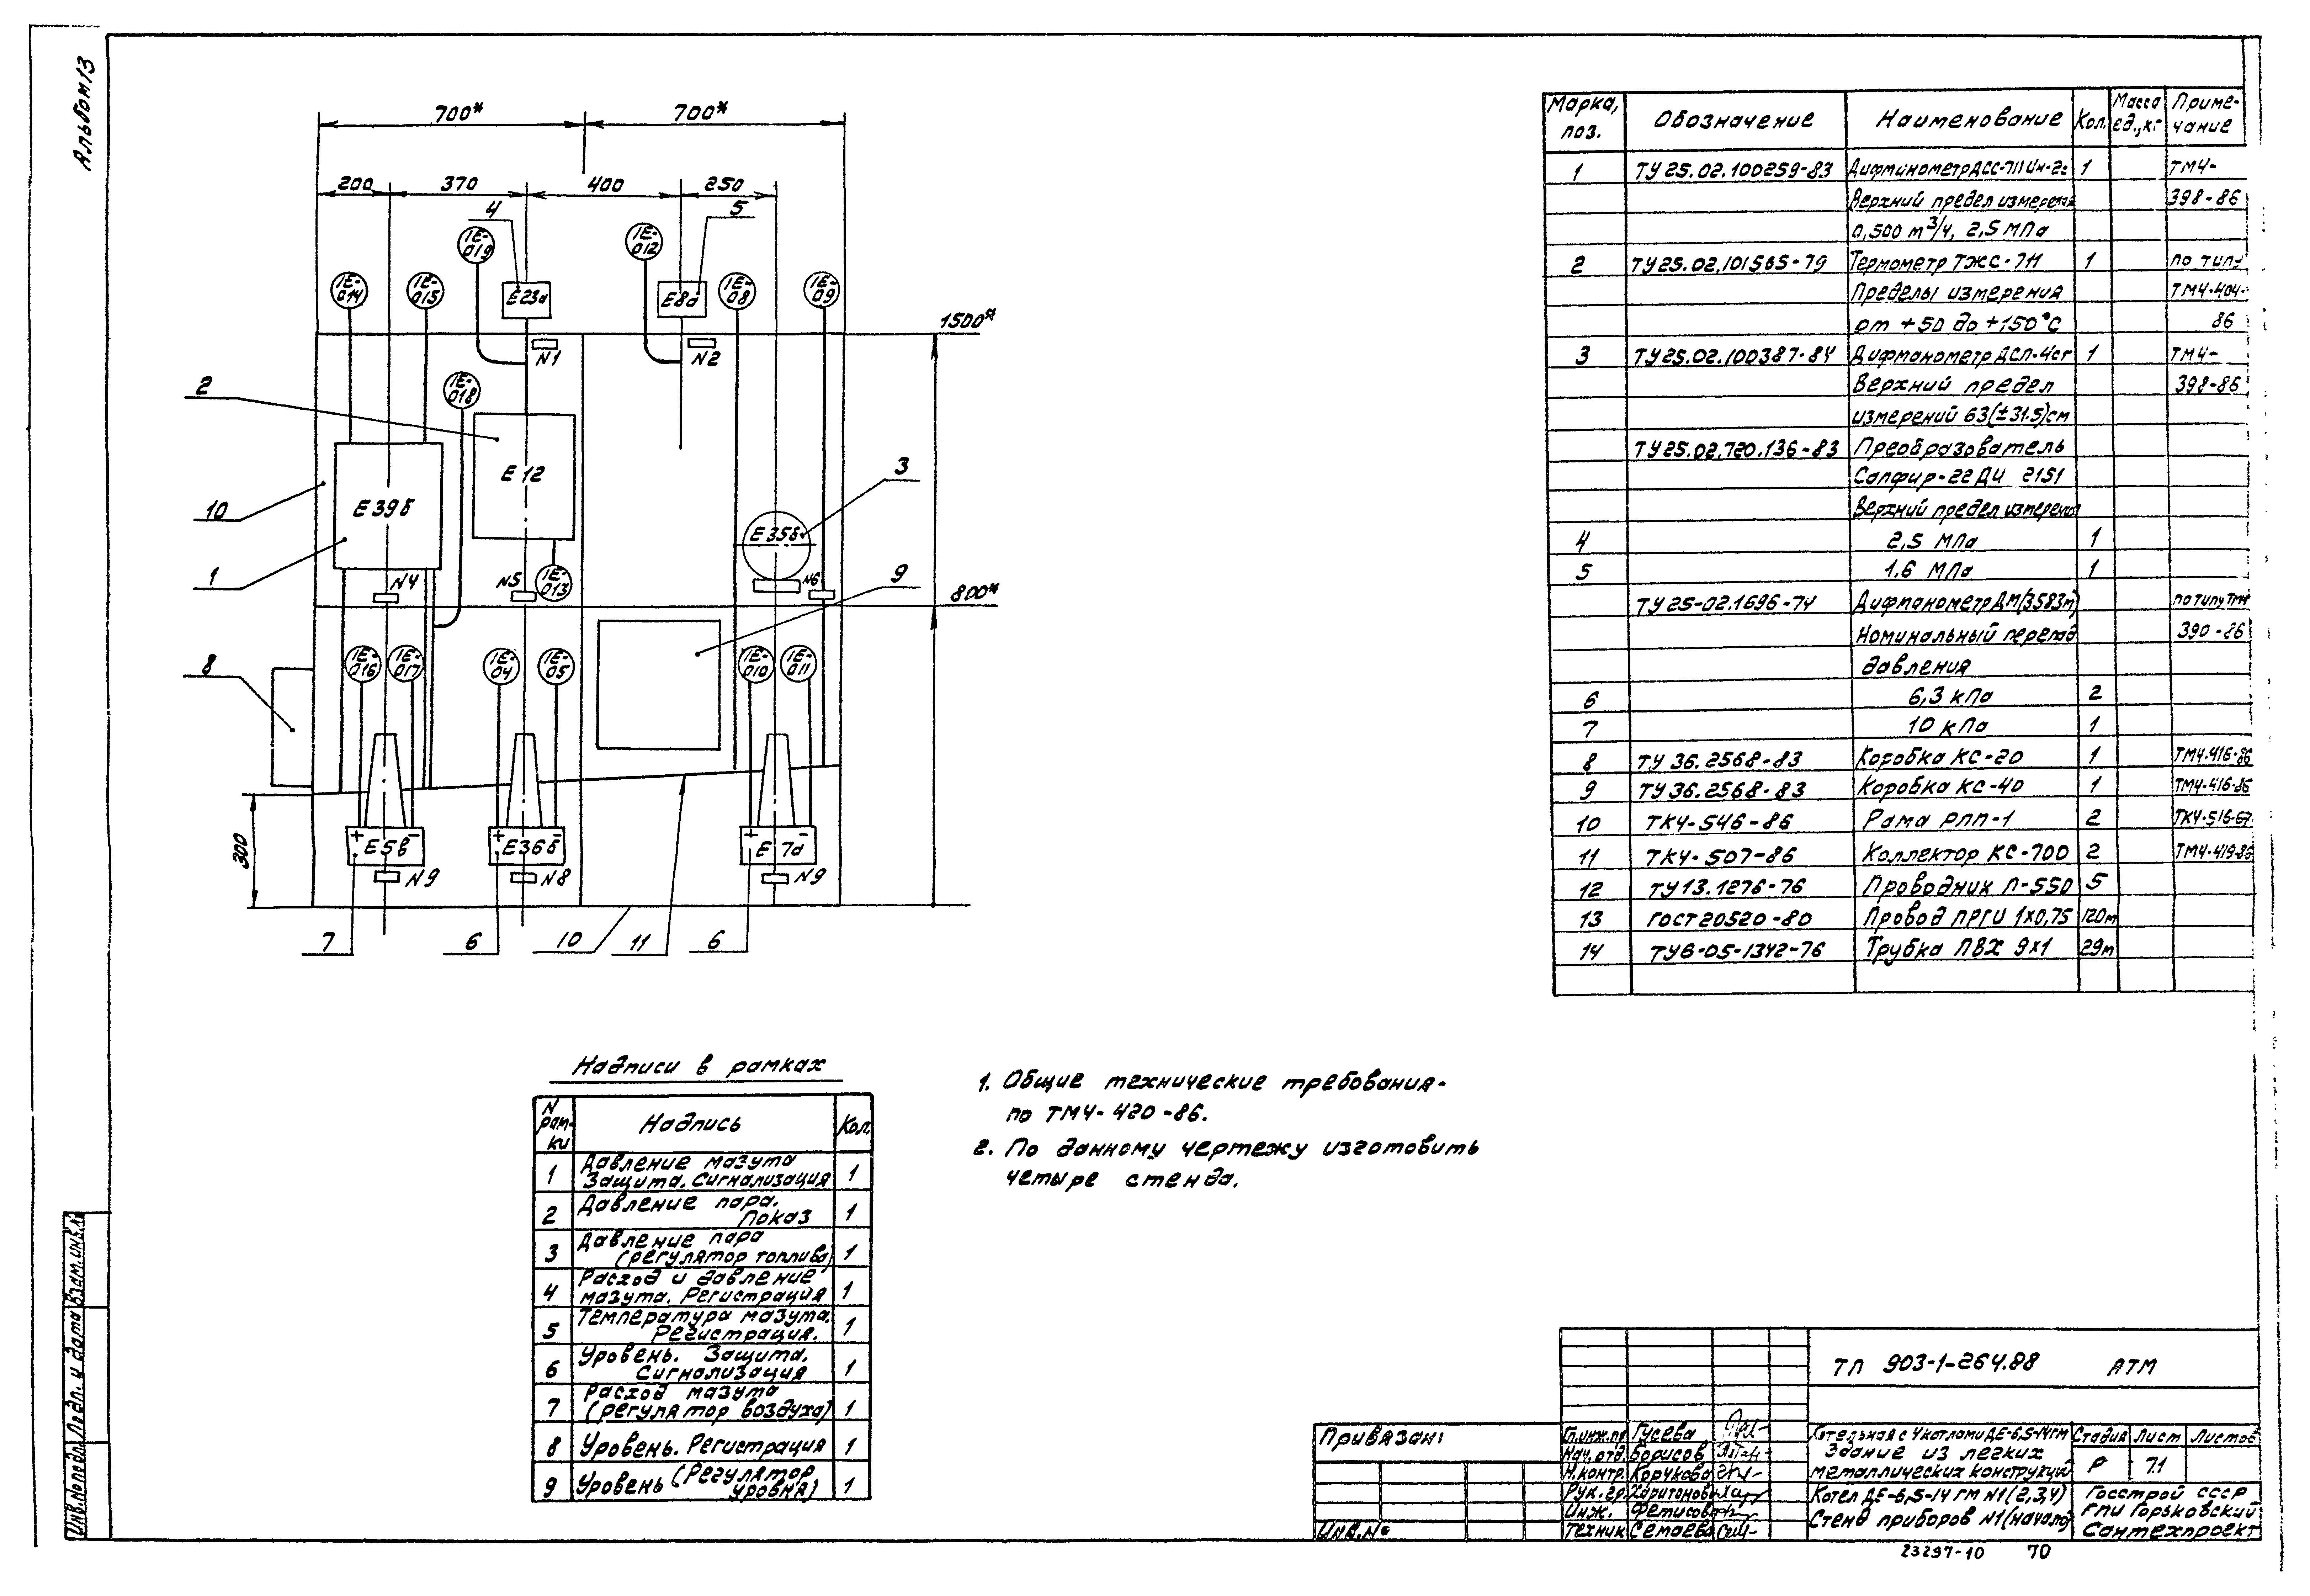 Альбом 13
700*
700*
200
370
400
250
4
5
1E-019
1E-012
1E-014
1E-015
Е23а
Е8а
1E-08
1E-09
1500*
N1
N2
2
1E-018
Е12
3
10
Е39б
Е35б
1
N4
N5
1E-013
N6
9
800*
8
1E-016
1E-017
1E-04
1E-05
1E-010
1E-011
300
+ Е5в -
+ Е36б -
+ Е7а -
N9
N8
N9
7
6
10
11
6
Марка, поз.
Обозначение
Наименование
Кол.
Масса ед., кг
Приме-чание
1 ТУ25.02.100259-83 Дифманометр ДСС-711Ин-2с 1 ТМ4-
Верхний предел измерений 398-86
0,500 м³/ч, 2,5 МПа
2 ТУ25.02.101565-79 Термометр ТЖС-711 1 по типу
Пределы измерения ТМ4-404-
от +50 до +150°С 86
3 ТУ25.02.100387-84 Дифманометр ДСП-4сг 1 ТМ4-
Верхний предел 398-86
измерений 63(±31.5)см
ТУ25.02.720.136-83 Преобразователь
Сапфир-22ДИ 2151
Верхний предел измерения
4 2,5 МПа 1
5 1.6 МПа 1
ТУ25-02.1696-74 Дифманометр ДМ(3583м) по типу ТМ4
Номинальный перепад 390-86
давления
6 6,3 кПа 2
7 10 кПа 1
8 ТУ 36.2568-83 Коробка КС-20 1 ТМ4-416-86
9 ТУ 36.2568-83 Коробка КС-40 1 ТМ4-416-86
10 ТК4-546-86 Рама РПП-1 2 ТК4-516-67
11 ТК4-507-86 Коллектор КС-700 2 ТМ4-419-86
12 ТУ13.1276-76 Проводник П-550 5
13 ГОСТ20520-80 Провод ПРГИ 1х0,75 120м
14 ТУ6-05-1342-76 Трубка ПВХ 9х1 29м
Надписи в рамках
N рам-ки
Надпись
Кол.
1 Давление мазута Защита. Сигнализация 1
2 Давление пара. Показ 1
3 Давление пара (регулятор топлива) 1
4 Расход и давление мазута. Регистрация 1
5 Температура мазута. Регистрация. 1
6 Уровень. Защита. Сигнализация 1
7 Расход мазута (регулятор воздуха) 1
8 Уровень. Регистрация 1
9 Уровень (Регулятор уровня) 1
1. Общие технические требования-
по ТМ4-420-86.
2. По данному чертежу изготовить
четыре стенда.
Инв.№ подл.
Подп. и дата
Взам.инв.№
ТП 903-1-264.88 АТМ
Привязан:
Инв.№
Гл.инж.пр Гусева
Нач.отд. Борисов
Н.контр. Корчкова
Рук.гр. Харитонова
Инж. Фетисова
Техник Семаева
Котельная с 4 котлами ДЕ-6,5-14ГМ
Здание из легких
металлических конструкций
Стадия Лист Листов
Р 7.1
Котел ДЕ-6,5-14 ГМ N1(2,3,4)
Стенд приборов N1(начало)
Госстрой СССР
ГПИ Горьковский
Сантехпроект
23297-10 70